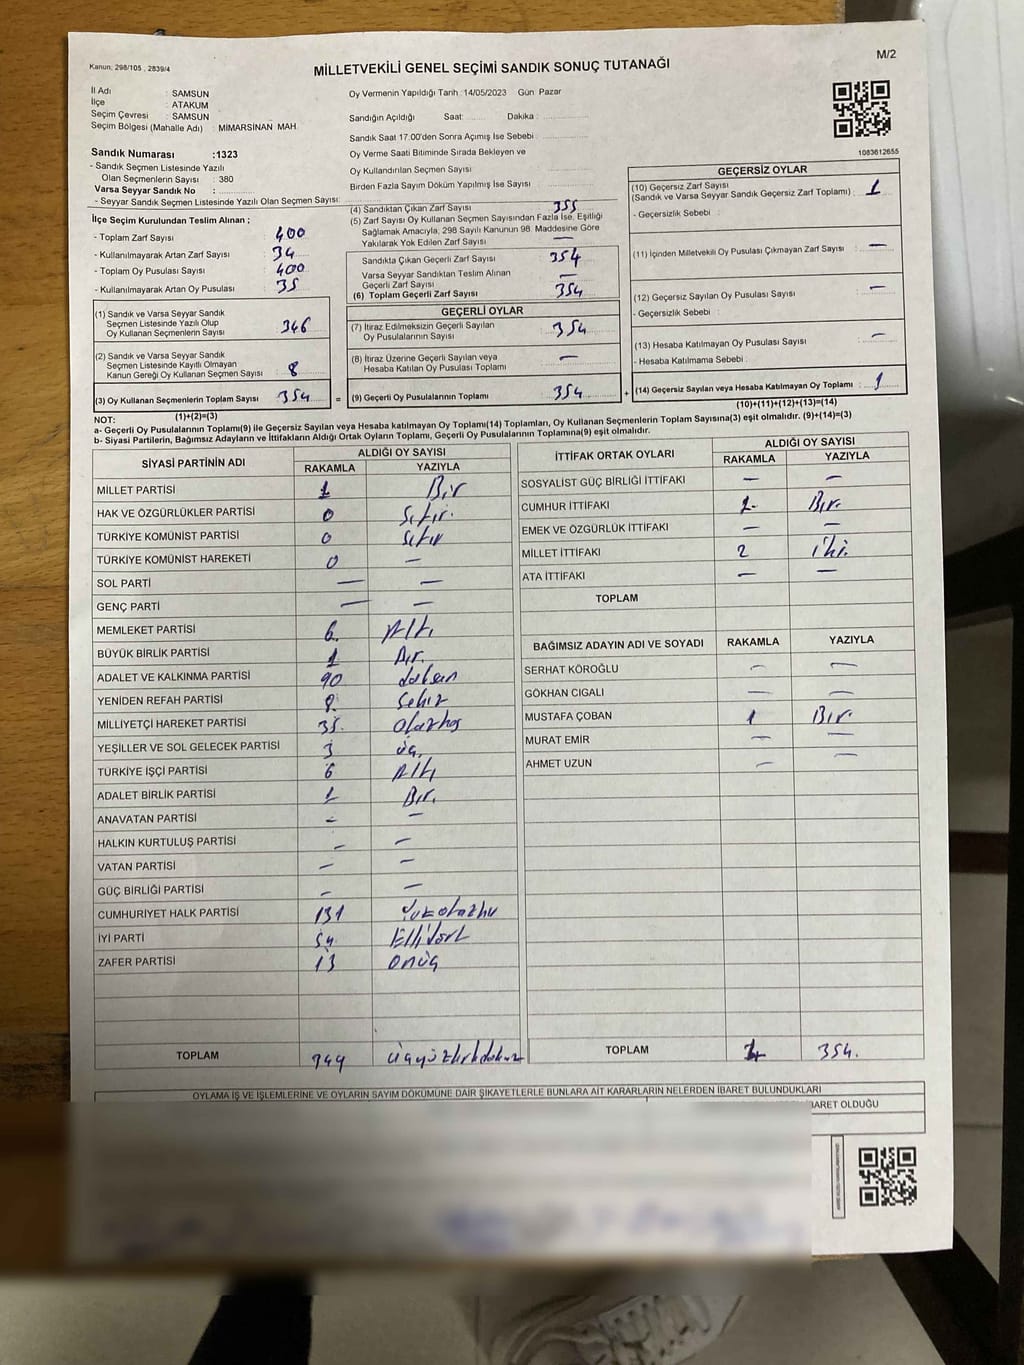 Kanun; 298/105 , 2839/4
MİLLETVEKİLİ GENEL SEÇİMİ SANDIK SONUÇ TUTANAĞI
M/2
İl Adı : SAMSUN
İlçe : ATAKUM
Seçim Çevresi : SAMSUN
Seçim Bölgesi (Mahalle Adı) : MİMARSİNAN MAH.
Oy Vermenin Yapıldığı Tarih :14/05/2023 Gün Pazar
Sandığın Açıldığı Saat: Dakika :
Sandık Saat 17.00'den Sonra Açımış İse Sebebi
Oy Verme Saati Bitiminde Sırada Bekleyen ve
Oy Kullandırılan Seçmen Sayısı
Birden Fazla Sayım Döküm Yapılmış İse Sayısı
1083612655
Sandık Numarası :1323
- Sandık Seçmen Listesinde Yazılı
Olan Seçmenlerin Sayısı : 380
Varsa Seyyar Sandık No :
- Seyyar Sandık Seçmen Listesinde Yazılı Olan Seçmen Sayısı
İlçe Seçim Kurulundan Teslim Alınan ;
- Toplam Zarf Sayısı 400
- Kullanılmayarak Artan Zarf Sayısı 34
- Toplam Oy Pusulası Sayısı 400
- Kullanılmayarak Artan Oy Pusulası 35
(1) Sandık ve Varsa Seyyar Sandık
Seçmen Listesinde Yazılı Olup
Oy Kullanan Seçmenlerin Sayısı 346
(2) Sandık ve Varsa Seyyar Sandık
Seçmen Listesinde Kayıtlı Olmayan
Kanun Gereği Oy Kullanan Seçmen Sayısı 8
(3) Oy Kullanan Seçmenlerin Toplam Sayısı 354 =
(4) Sandıktan Çıkan Zarf Sayısı 355
(5) Zarf Sayısı Oy Kullanan Seçmen Sayısından Fazla İse, Eşitliği
Sağlamak Amacıyla, 298 Sayılı Kanunun 98. Maddesine Göre
Yakılarak Yok Edilen Zarf Sayısı —
Sandıkta Çıkan Geçerli Zarf Sayısı 354
Varsa Seyyar Sandıktan Teslim Alınan
Geçerli Zarf Sayısı —
(6) Toplam Geçerli Zarf Sayısı 354
GEÇERLİ OYLAR
(7) İtiraz Edilmeksizin Geçerli Sayılan
Oy Pusulalarının Sayısı 354
(8) İtiraz Üzerine Geçerli Sayılan veya
Hesaba Katılan Oy Pusulası Toplamı —
(9) Geçerli Oy Pusulalarının Toplamı 354 +
GEÇERSİZ OYLAR
(10) Geçersiz Zarf Sayısı
(Sandık ve Varsa Seyyar Sandık Geçersiz Zarf Toplamı) : 1
- Geçersizlik Sebebi :
(11) İçinden Milletvekili Oy Pusulası Çıkmayan Zarf Sayısı —
(12) Geçersiz Sayılan Oy Pusulası Sayısı : —
- Geçersizlik Sebebi :
(13) Hesaba Katılmayan Oy Pusulası Sayısı —
- Hesaba Katılmama Sebebi :
(14) Geçersiz Sayılan veya Hesaba Katılmayan Oy Toplamı : 1
NOT: (1)+(2)=(3)
(10)+(11)+(12)+(13)=(14)
a- Geçerli Oy Pusulalarının Toplamı(9) ile Geçersiz Sayılan veya Hesaba katılmayan Oy Toplamı(14) Toplamları, Oy Kullanan Seçmenlerin Toplam Sayısına(3) eşit olmalıdır. (9)+(14)=(3)
b- Siyasi Partilerin, Bağımsız Adayların ve İttifakların Aldığı Ortak Oyların Toplamı, Geçerli Oy Pusulalarının Toplamına(9) eşit olmalıdır.
SİYASİ PARTİNİN ADI ALDIĞI OY SAYISI
RAKAMLA YAZIYLA
MİLLET PARTİSİ 1 Bir
HAK VE ÖZGÜRLÜKLER PARTİSİ 0 Sıfır.
TÜRKİYE KOMÜNİST PARTİSİ 0 Sıfır
TÜRKİYE KOMÜNİST HAREKETİ 0 —
SOL PARTİ — —
GENÇ PARTİ — —
MEMLEKET PARTİSİ 6. Altı
BÜYÜK BİRLİK PARTİSİ 1 Bir.
ADALET VE KALKINMA PARTİSİ 90 doksan
YENİDEN REFAH PARTİSİ 8. Sekiz
MİLLİYETÇİ HAREKET PARTİSİ 35. Otuzbeş
YEŞİLLER VE SOL GELECEK PARTİSİ 3 üç,
TÜRKİYE İŞÇİ PARTİSİ 6 Altı
ADALET BİRLİK PARTİSİ 1 Bir.
ANAVATAN PARTİSİ — —
HALKIN KURTULUŞ PARTİSİ — —
VATAN PARTİSİ — —
GÜÇ BİRLİĞİ PARTİSİ — —
CUMHURİYET HALK PARTİSİ 131
İYİ PARTİ 54. Ellidört
ZAFER PARTİSİ 13 onüç
TOPLAM 349 üçyüzkırkdokuz
İTTİFAK ORTAK OYLARI ALDIĞI OY SAYISI
RAKAMLA YAZIYLA
SOSYALİST GÜÇ BİRLİĞİ İTTİFAKI — —
CUMHUR İTTİFAKI 1. Bir.
EMEK VE ÖZGÜRLÜK İTTİFAKI — —
MİLLET İTTİFAKI 2 iki.
ATA İTTİFAKI — —
TOPLAM
BAĞIMSIZ ADAYIN ADI VE SOYADI RAKAMLA YAZIYLA
SERHAT KÖROĞLU — —
GÖKHAN CIGALI — —
MUSTAFA ÇOBAN 1 Bir.
MURAT EMİR — —
AHMET UZUN — —
TOPLAM 354.
OYLAMA İŞ VE İŞLEMLERİNE VE OYLARIN SAYIM DÖKÜMÜNE DAİR ŞİKAYETLERLE BUNLARA AİT KARARLARIN NELERDEN İBARET BULUNDUKLARI
BARET OLDUĞU